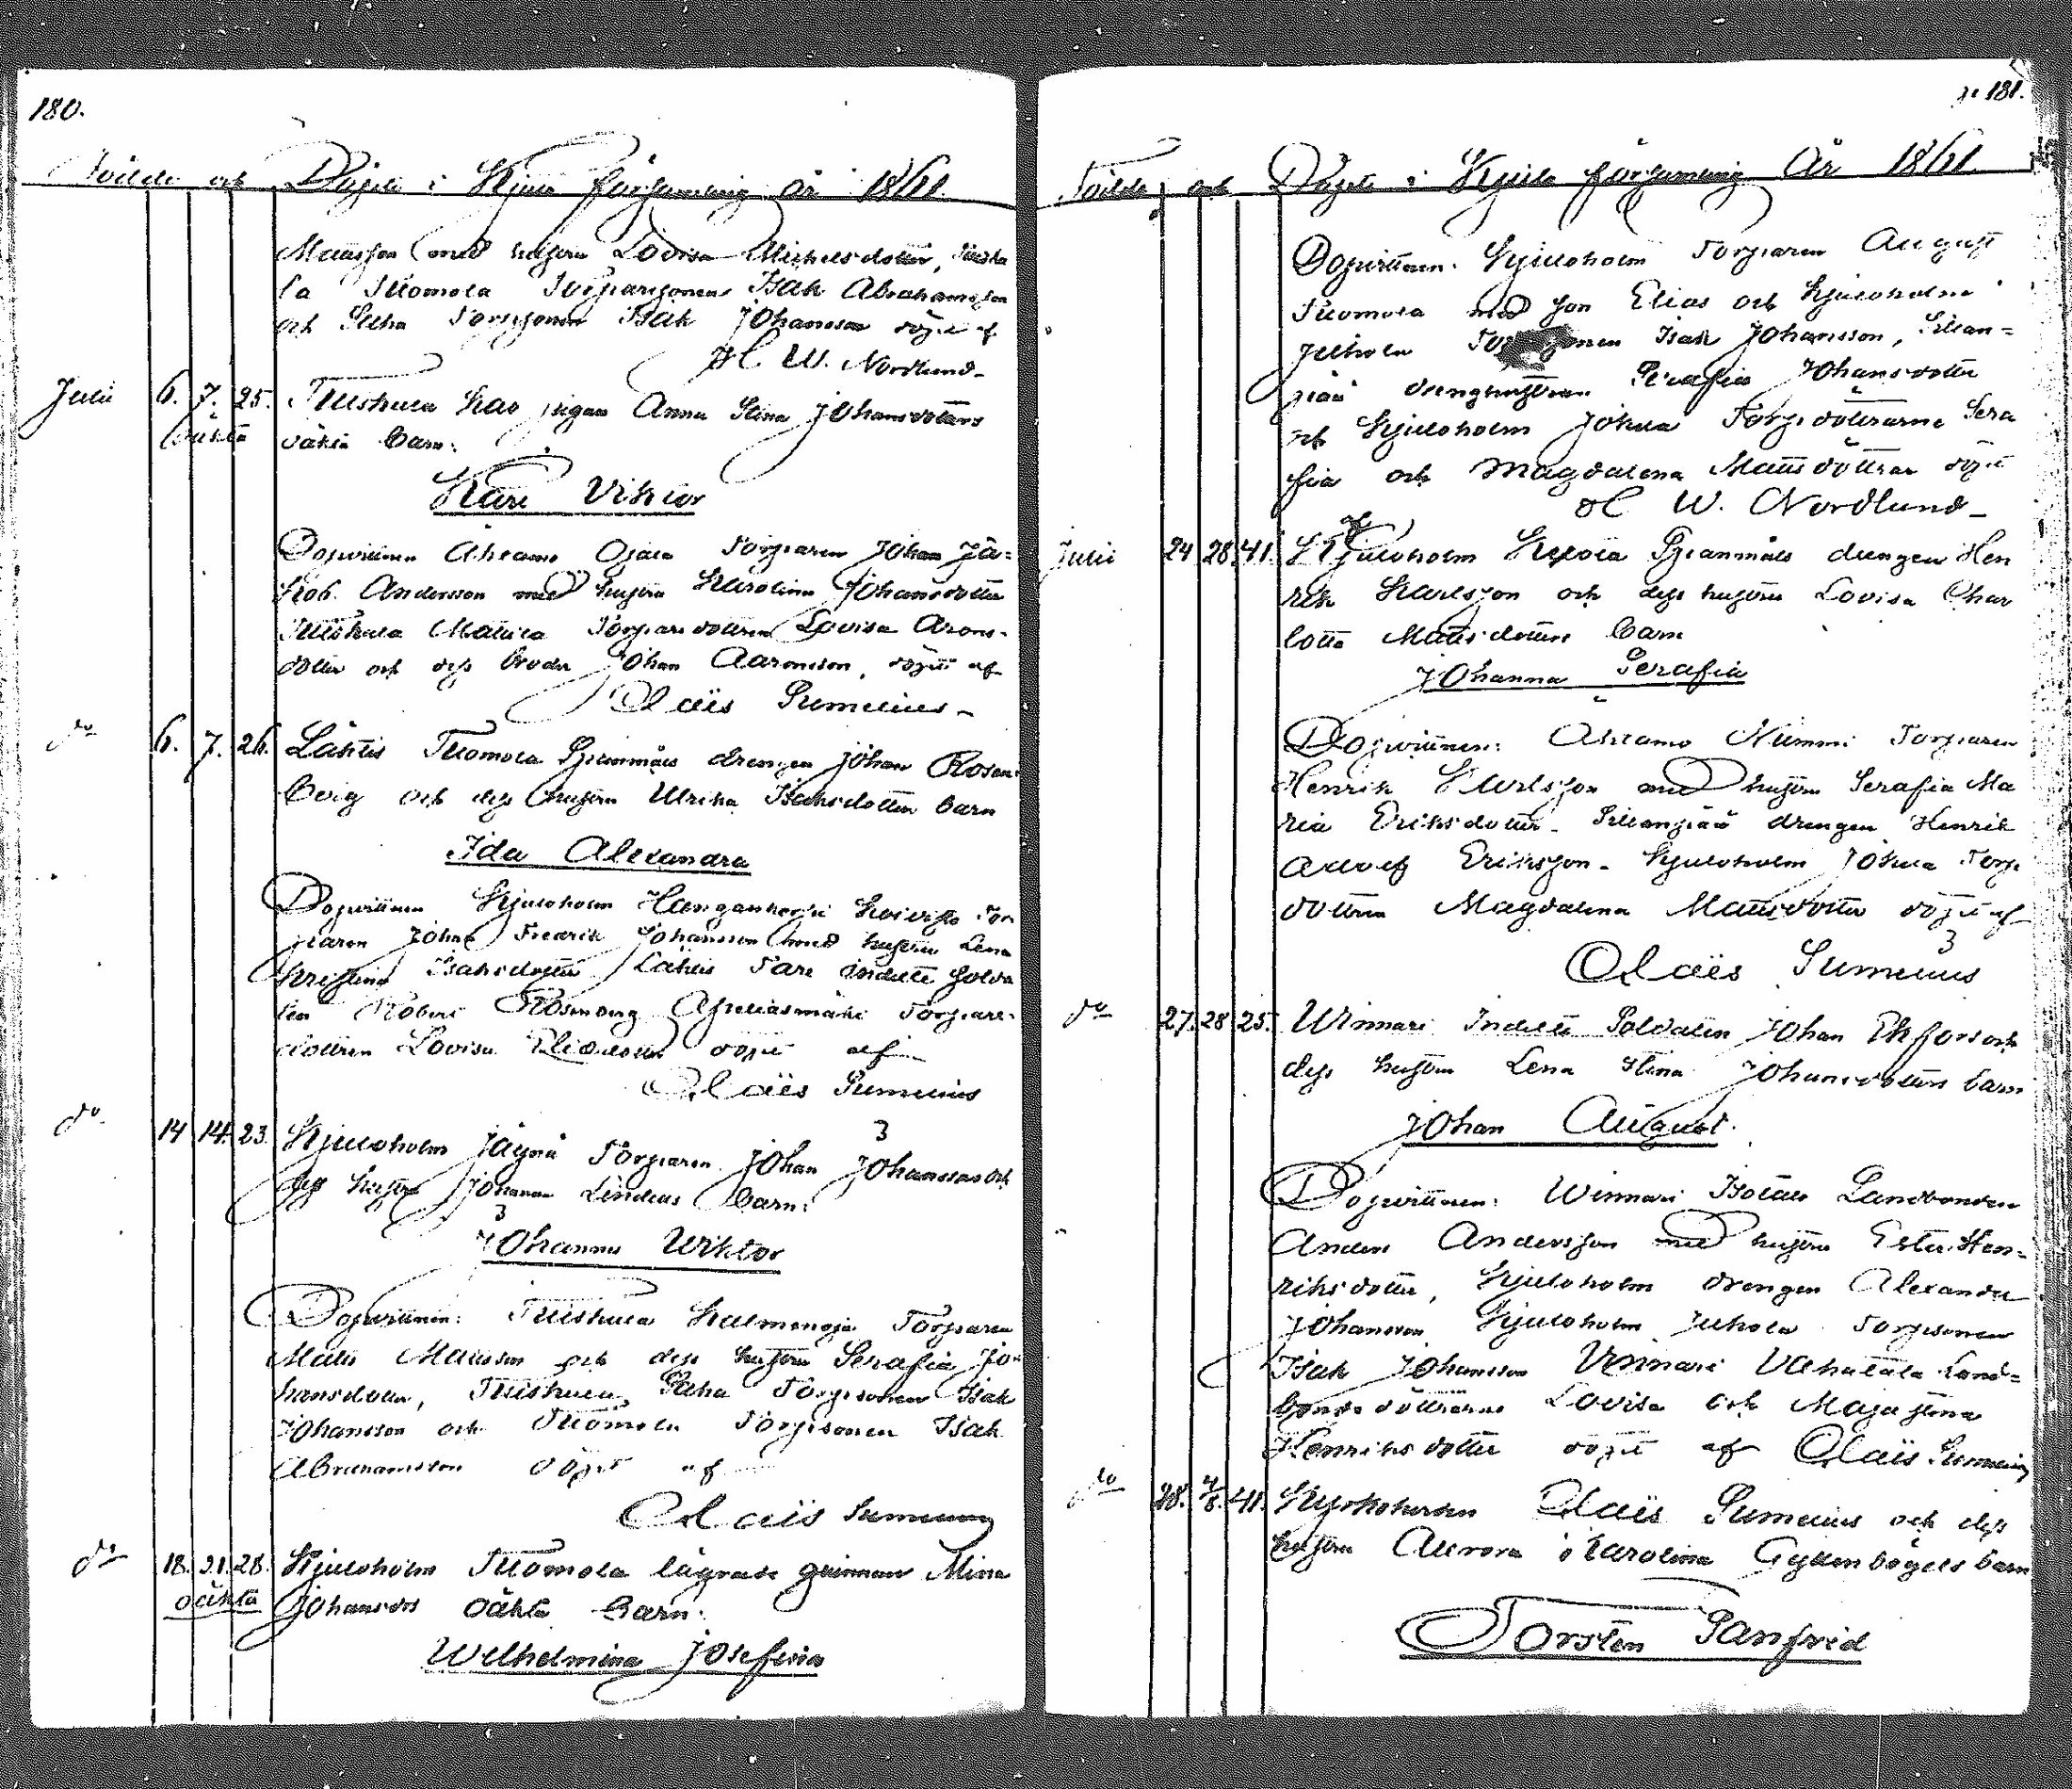 180.
Födde och Döpte i Kjulo församling år 1861.
Mattsson med hustru Lovisa Michelsdotter,
la Tuomola Torparesonen Isak Abrahamsson
och Torpsonen Isak Johansson döpt af
W. Nordlund
Julii 6. 7. 25. pigan Anna Stina Johansdotters
oäkta oäkta barn:
Karl Viktor
Dopvittnen Ahtamo Ojala Torparen Johan Ja=
kob Andersson med hustru Karolina Johansdotter
Matila Torparedottren Lovisa Arons-
dotter och dess broder Johan Aaronsson, döpt af
Claës Sumelius
do 6. 7. 26. Lähtis Tuomola Spanmåls drengen Johan Rosen
berg och dess hustru Ulrika Isaksdotters barn
Ida Alexandra
Dopvittnen Kjuloholm Koivisto Tor
paren Johan Fredrik Johansson med hustru Lena
Kristina Isaksdotter Lähtis Indelte Solda
ten Robert Rosenberg Torpare-
dottren Lovisa döpt af
Claës Sumelius
do 14 14. 23. Kjuloholm Torparen Johan Johansson och
dess hustru Johanna Lindens barn:
Johannes Wiktor
Dopvittnen: Torparen
Matts Mattsson och dess hustru Serafia Jo=
hansdotter, Torpsonen Isak
Johansson och Tuomola Torpsonen Isak
Abrahamsson döpt af
Claës Sumelius
do 18. 21. 28. Kjuloholm Tuomola qvinnan Mina
oäkta Johansdr oäkta barn:
Wilhelmina Josefina
181.
Födde och Döpte i Kjulo församling År 1861.
Dopvittnen: Kjuloholm Torparen August
Tuomola med son Elias och Kjuloholm
Juhola Isak Johansson, Sillan=
pää drenghustrun Serafia Johansdotter
och Kjuloholm Torpdöttrarne Sera
fia och Magdalena Mattsdöttrar döpt
af W. Nordlund
Julii 24 28. 41. Kjuloholm Spanmåls drengen Hen
rik Karlsson och dess hustru Lovisa Char
lotta Mattsdotters barn
Johanna Serafia
Dopvittnen: Ahtamo Nummi Torparen
Henrik Karlsson med hustru Serafia Ma
ria Eriksdotter. Sillanpää drengen Henrik
Adolf Eriksson. Kjuloholm Torp
dottren Magdalena Mattsdotter döpt af
Claës Sumelius
do 27. 28 25. Winnari Indelte Soldaten Johan Ekfors och
dess hustru Lena Stina Johansdotters barn
Johan August.
Dopvittnen: Winnari Isotalo Landbonden
Anders Andersson med hustru Ester Hen=
riksdotter, Kjuloholm drengen Alexander
Johansson Kjuloholm Juhola Torpsonen
Isak Johansson Winnari Vähätalo Land=
bondedöttrarne Lovisa och Maja Stina
Henriksdotter döpt af Claës Sumelius
do 28. 4/8. 41. Kyrkoherden Claës Sumelius och dess
hustru Aurora Karolina Gyllenbögels barn
Torsten Sanfrid